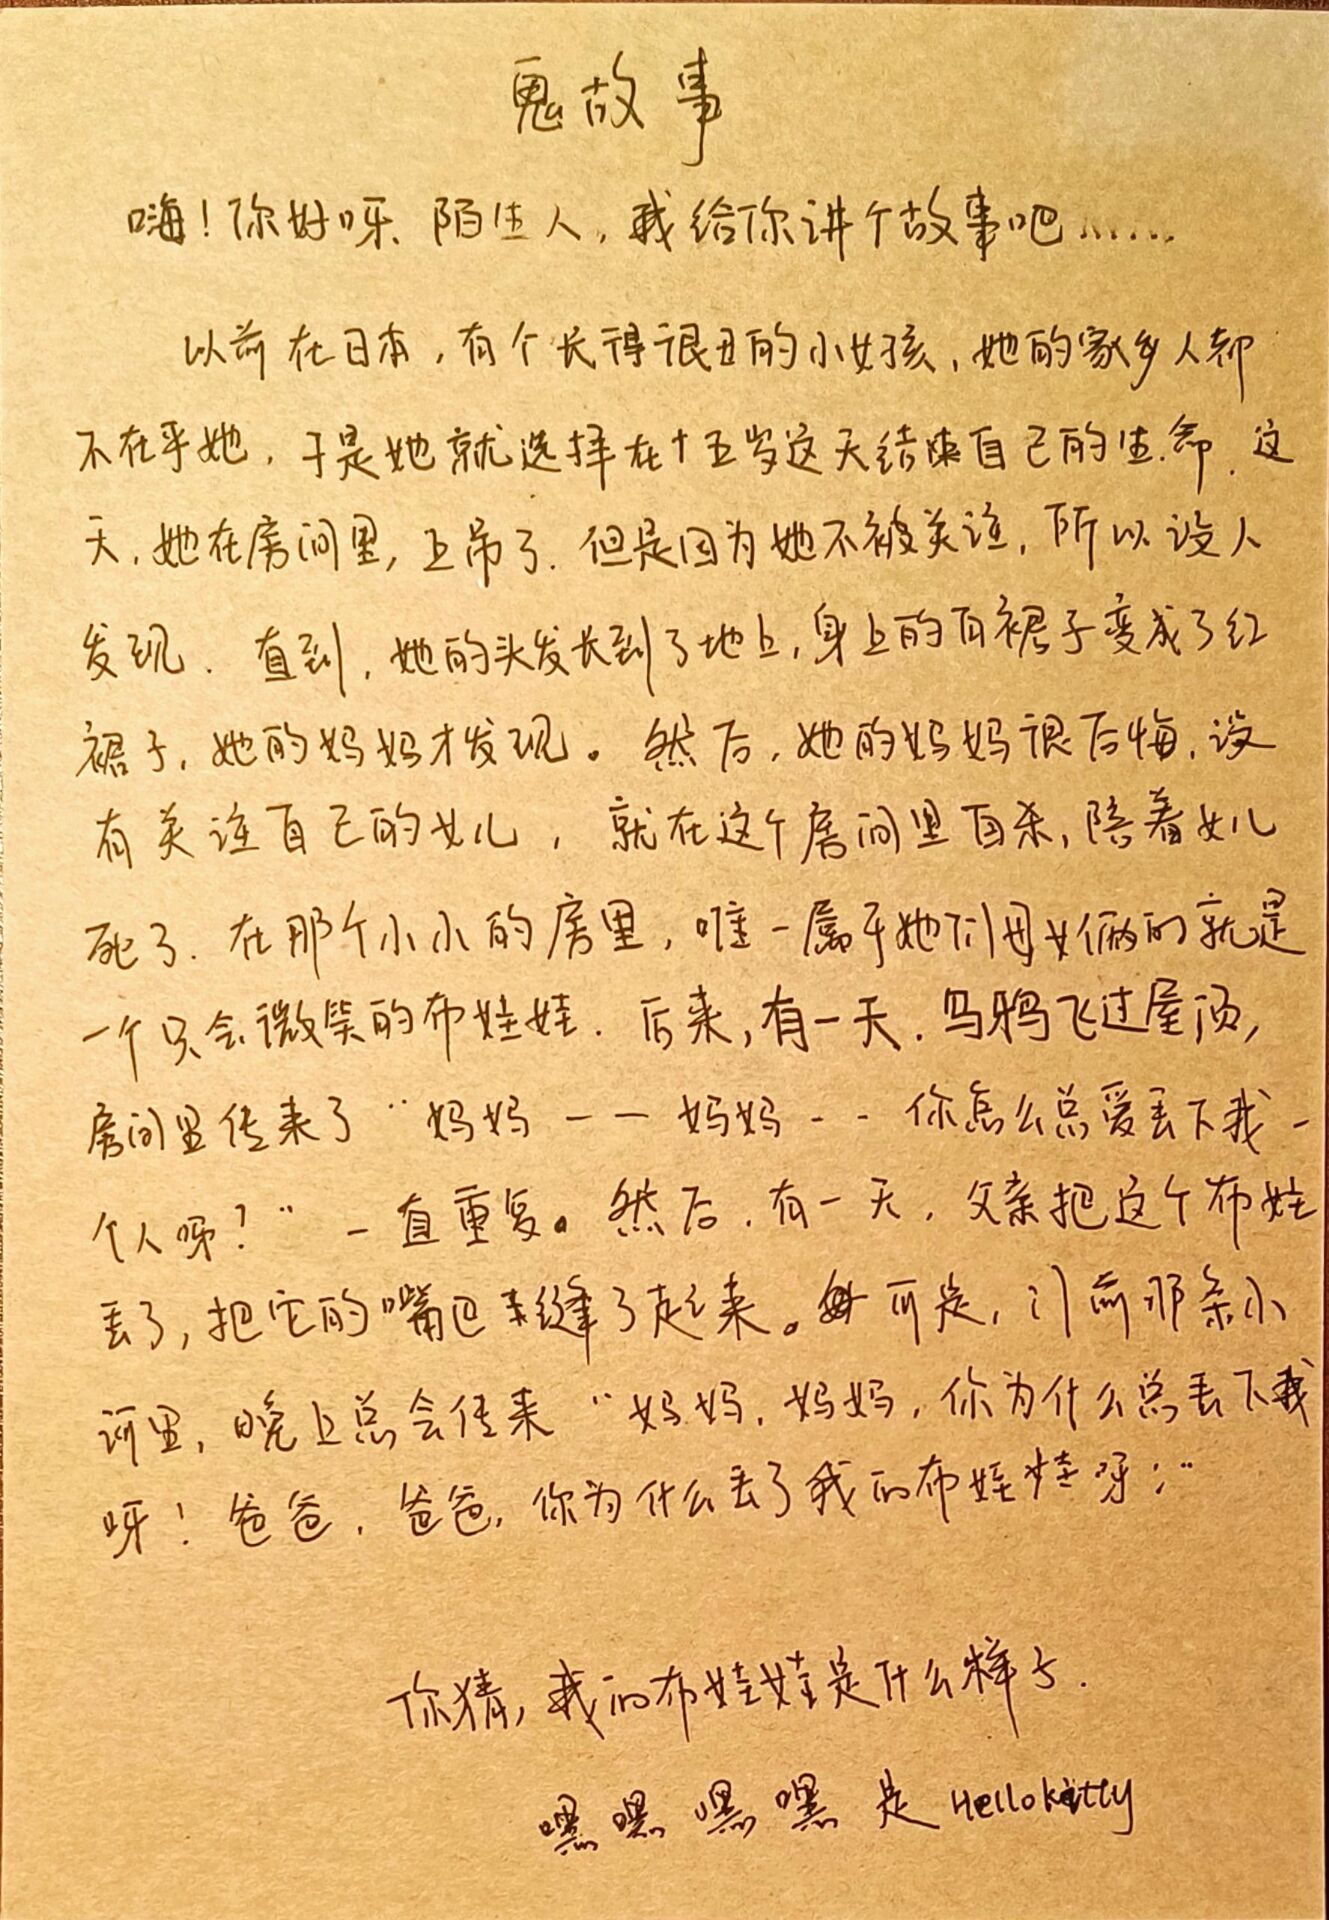 鬼故事
嗨!你好呀、陌生人,我给你讲个故事吧......
以前在日本,有个长得很丑的小女孩,她的家乡人都
不在乎她,于是她就选择在十五岁这天结束自己的生命.这
天,她在房间里,上吊了.但是因为她不被关注,所以没人
发现.直到,她的头发长到了地上,身上的白裙子变成了红
裙子,她的妈妈才发现。然后,她的妈妈很后悔,没
有关注自己的女儿,就在这个房间里自杀,陪着女儿
死了.在那个小小的房里,唯一属于她们母女俩的就是
一个只会微笑的布娃娃.后来,有一天.乌鸦飞过屋顶,
房间里传来了"妈妈——妈妈--你怎么总爱丢下我一
个人呀?"一直重复。然后.有一天,父亲把这个布娃
丢了,把它的嘴巴缝了起来。可是,门前那条小
河里,晚上总会传来"妈妈,妈妈,你为什么总丢下我
呀!爸爸,爸爸,你为什么丢了我的布娃娃呀;"
你猜,我的布娃娃是什么样子.
嘿嘿嘿嘿是Hellokitty